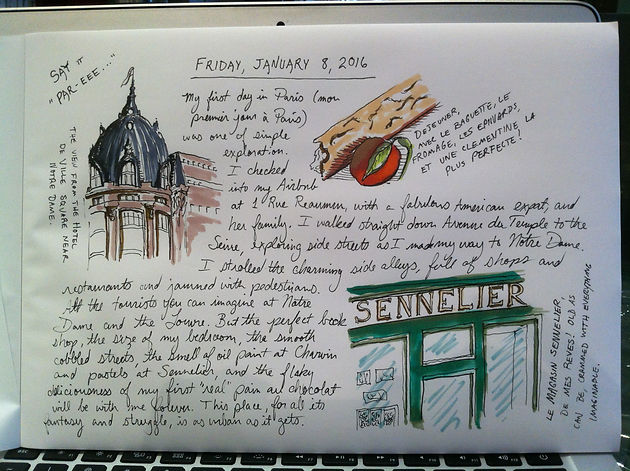 FRIDAY, JANUARY 8, 2016
SAY "
"PAR-EEE...."
THE VIEW FROM THE HOTEL
DE VILLE SQUARE NEAR
NOTRE DAME.
My first day in Paris (mon
premier jour à Paris)
was one of simple
exploration.
I checked
into my Airbnb
at 1 Rue Reaumur, with a fabulous American expat, and
her family. I walked straight down Avenue du Temple to the
Seine, exploring side streets as I made my way to Notre Dame.
I strolled the charming side alleys, full of shops and
restaurants and jammed with pedestrians.
All the tourists you can imagine at Notre
Dame and the Louvre. But the perfect book
shop, the size of my bedroom, the smooth
cobbled streets the smell of oil paint at Charvin
and pastels at Sennelier, and the flakey
deliciousness of my first "real" pain au chocolat
will be with me forever. This place, for all its
fantasy and struggle, is as urban as it gets.
DEJEUNER,
AVEC LE BAGUETTE, LE
FROMAGE, LES EPINARDS,
ET UNE CLEMENTINE LA
PLUS PERFECTE!
SENNELIER
LE MAGASIN SENNELIER,
DE MES REVES! OLD AS
CAN BE, CRAMMED WITH EVERYTHING
IMAGINABLE.